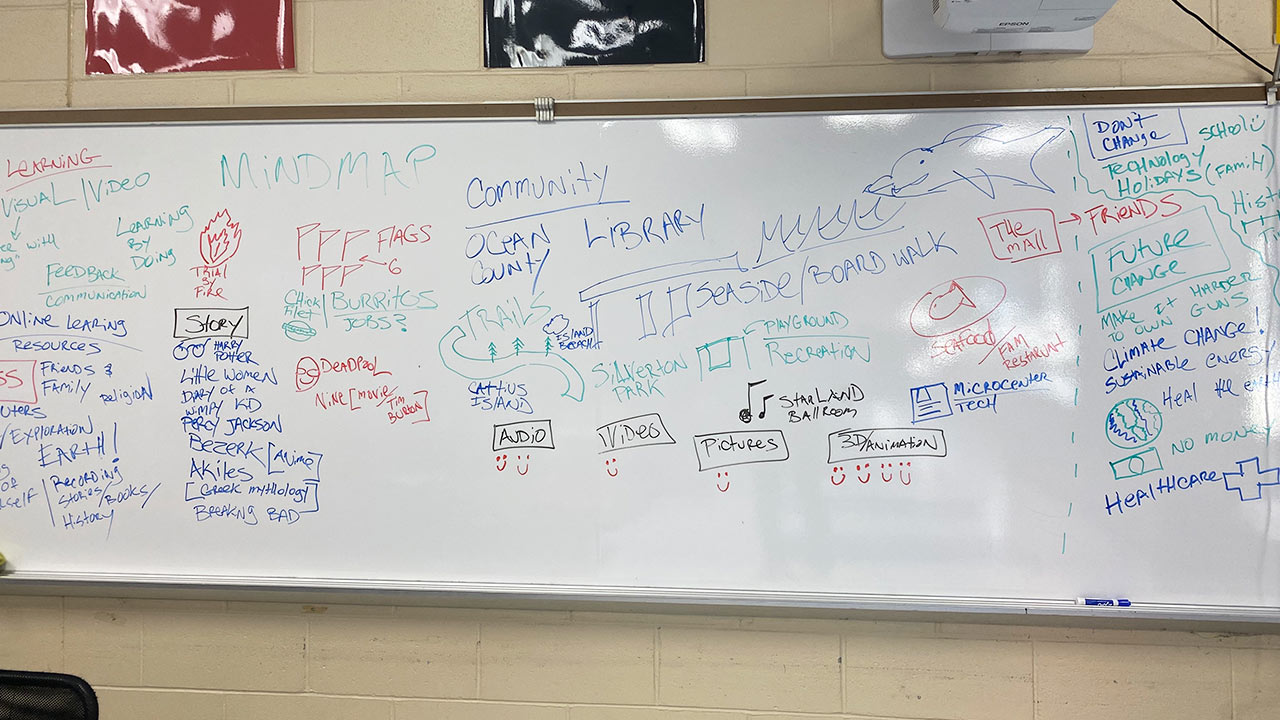 EPSON
LEARNING
VISUAL / VIDEO
with
LEARNING
BY
DOING
FEEDBACK
COMMUNICATION
ONLINE LEARING
RESOURCES
FRIENDS &
FAMILY
RELIGION
EXPLORATION
EARTH!
RECORDING
STORIES/BOOKS/
HISTORY
MINDMAP
TRIAL
BY
FIRE
STORY
HARRY
POTTER
LITTLE WOMEN
DIARY OF A
WIMPY KID
PERCY JACKSON
BEZERK [ANIME]
AKILES
[GREEK MYTHOLOGY]
BREAKNG BAD
FLAGS
6
CHICK
FILET
BURRITOS
JOBS?
DEADPOOL
NINE [MOVIE/
TIM
BURTON]
COMMUNITY
OCEAN
COUNTY
LIBRARY
SEASIDE/BOARD WALK
TRAILS
ISLAND
BEACH
CATTIUS
ISLAND
SILVERTON
PARK
PLAYGROUND
RECREATION
STARLAND
BALLROOM
SEAFOOD
/FAM
RESTAURANT
MICROCENTER
TECH
THE
MALL
FRIENDS
AUDIO
VIDEO
PICTURES
3D/ANIMATION
DON'T
CHANGE
SCHOOL
TECHNOLOGY
HOLIDAYS (FAMILY)
FUTURE
CHANGE
MAKE IT HARDER
TO OWN GUNS
CLIMATE CHANGE!
SUSTAINABLE ENERGY
HEAL THE
NO MONEY
HEALTHCARE